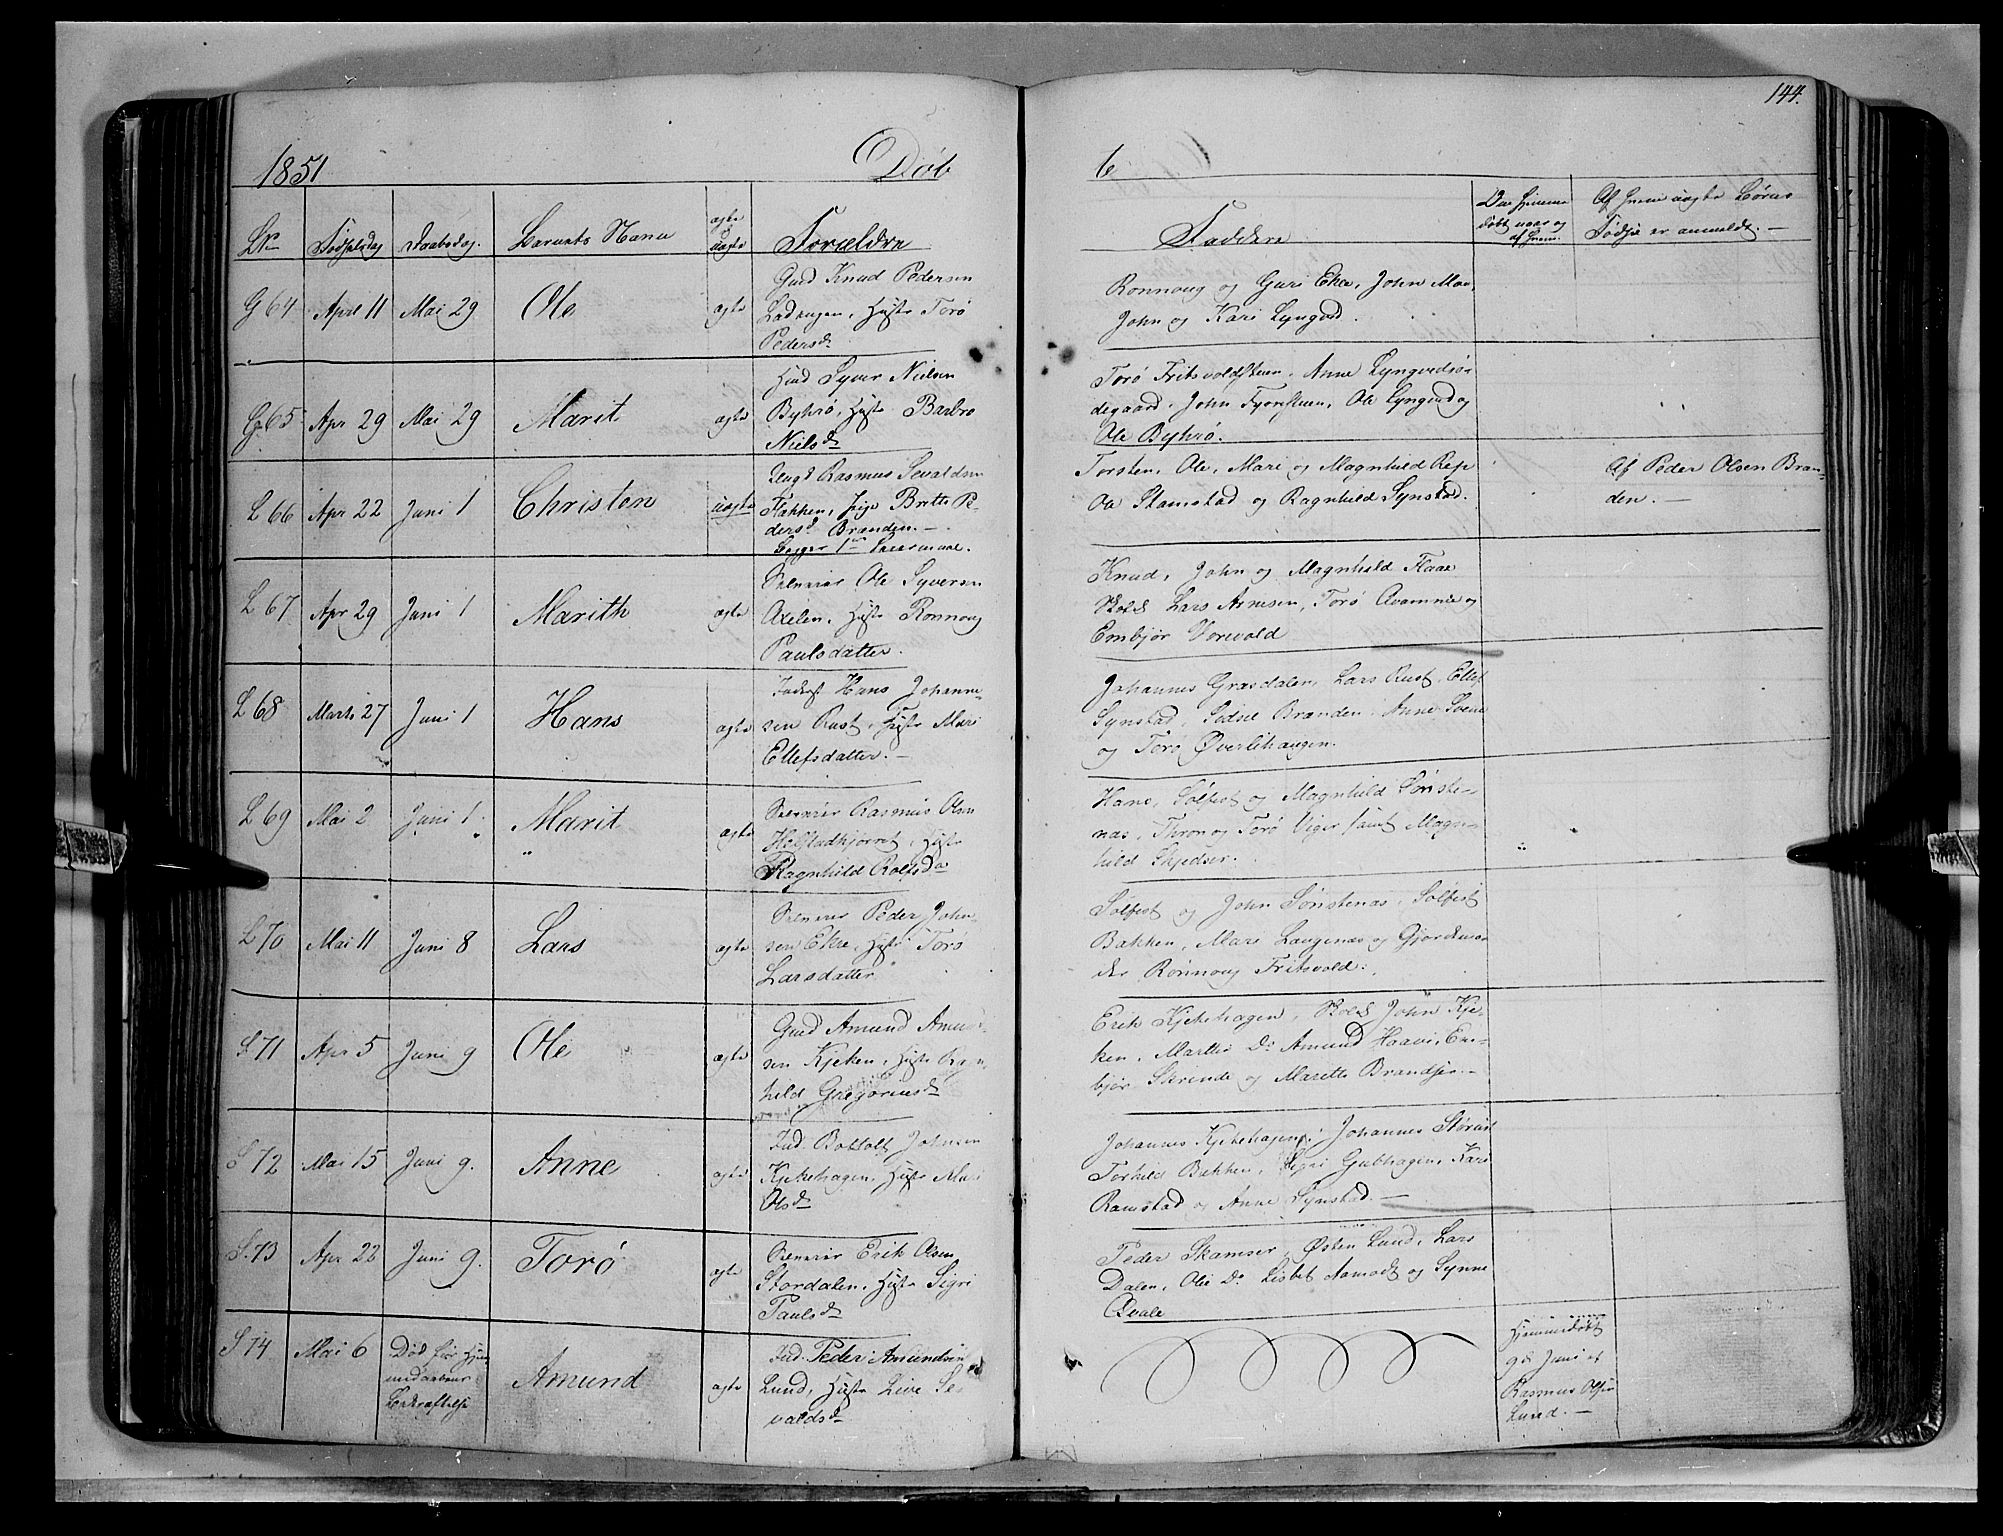 144.
1851
Döb
t
Födselsdag
Daabsdag.
Barnets Navn
ægte
uægte
Forældre
Faddere
Af hvem uægte Børns
Fødsel er anmeldt. —
G 64
April 11
Mai 29
Ole
ægte
Gmd Knud Pedersen
Ladengen, Hustr Torö
Pedersd
Ronnoug og Guri Ekre, John Moe,
John og Kari Lyngved.
G 65
Apr 29
Mai 29
Marit
ægte
Hmd Syver Nielsen
Byhrö, Hustr Barbro
Nielsd
Torö Fritsvoldsteen, Anne Lyngvedsö
degaard, John Ole Lyngved og
Ole Byhrö.
L 66
Apr 22
Juni 1
Christen
uægte
Ungk Rasmus Sevaldsen
Flakken, pige Britte Pe-
dersd Branden. —
Begges 1ste Leiermaal.
Torsten, Ole, Mari og Magnhild Rep
Ole Stamstad og Ragnhild Synstad.
Af Peder Olsen Bran-
den. —
L 67
Apr 29
Juni 1
Marith
ægte
Ole Syversen
Axelen, Hustr Ronnoug
Paulsdatter.
Knud, John og Magnhild Flaae
Skoleh Lars Torö og
Embjör Vorevold
L 68
Marts 27
Juni 1
Hans
ægte
Hans Johanne-
sen Rust, Hustr Mari
Ellefsdatter. —
Johannes Græsdalen, Lars Rust, Ellef
Synstad, Branden, Anne
og Torö Øverlihaugen.
L 69
Mai 2
Juni 1
Marit
ægte
Rasmus Olsen
Helstadkjörret, Hustr
Ragnhild Rolfsd
Hans, Sölfest og Magnhild Sönste-
næs, Thron og Torö Viger samt Magn-
hild Skjedser.
L 70
Mai 11
Juni 8
Lars
ægte
Peder John-
sen Ekre, Hustr Torö
Larsdatter
Sölfest og John Sönstenæs, Sölfest
Bakken, Mari Langenæs og Gjordemo-
der Ronnoug Fritsvold.
S 71
Apr 5
Juni 9
Ole
ægte
Gmd Amund Amund-
sen Kjeken, Hustr Ragn
hild Gregoriusd
Erik Kjekehagen, Skoleh John Kje-
ken, Marthe Do Amund Haavi, Em-
björ Skrinde og Marette Brandsær. —
S 72
Mai 15
Juni 9.
Anne
ægte
Ind Bottolf Johnsen
Kjekehagen, Hustr Mari
Olsd
Johannes Kjekehagen, Johannes
Torkild Bakken, Sigri Gubhagen, Kari
Ramstad og Anne Synstad. —
S. 73
Apr 22
Juni 9.
Torö
ægte
Erik Olsen
Stordalen, Hustr Sigri
Paulsd
Peder Skamser, Østen Lund, Lars
Dalen, Ole Do Lisbet Aamodt og Synne
Qvale
S 74
Mai 6
Död för Hjem
medaabens
Bekræftelse
Amund
ægte
Ind. Peder Amundsen
Lund, Hustr Live Se-
valdsd
Hjemmedöbt
9de Juni af
Rasmus Olsen
Lund. —